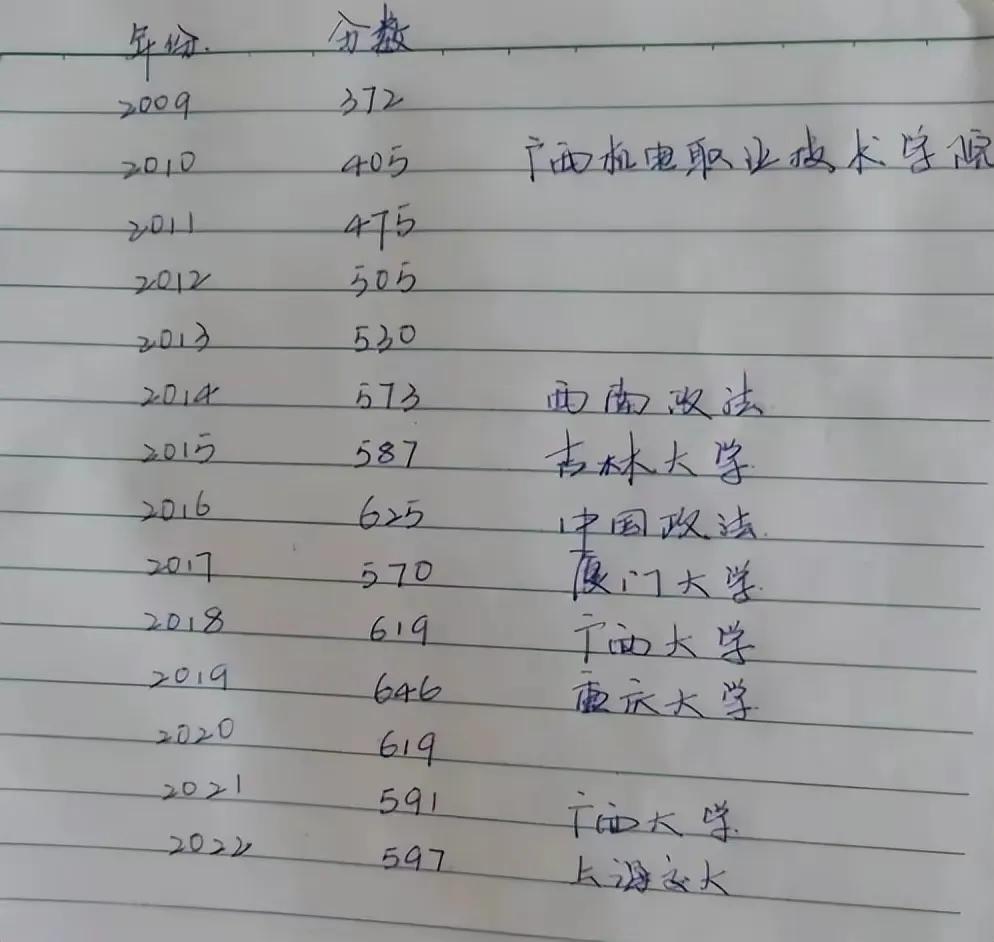 年份. 分数
2009 372
2010 405 广西机电职业技术学院
2011 475
2012 505
2013 530
2014 573 西南政法
2015 587 吉林大学
2016 625 中国政法
2017 570 厦门大学
2018 619 广西大学
2019 646 重庆大学
2020 619
2021 591 广西大学
2022 597 上海交大